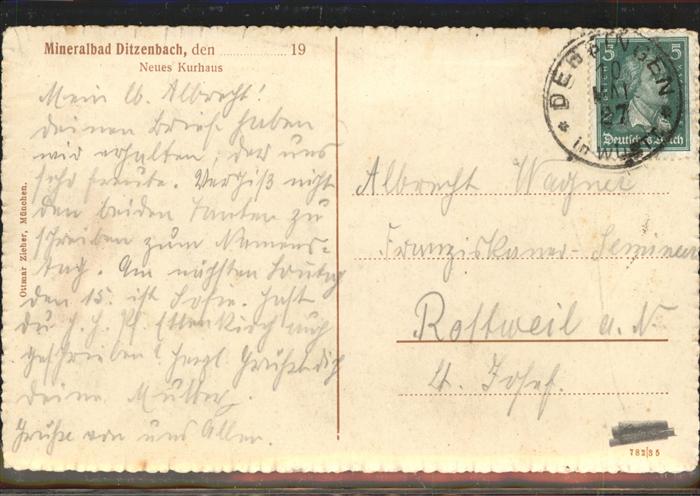 Mineralbad Ditzenbach, den 19
Neues Kurhaus
Mein lb. Albrecht!
deinen Brief haben
wir erhalten, der uns
sehr freute. Vergiß nicht
den beiden Tanten zu
schreiben zum Namens-
tag. Am nächsten Sonntag
den 15. ist Sofie. Hast
Du h. h. Pf. Ettenkirch auch
geschrieben? Herzl. Grüße dich
deine Mutter.
Grüße von uns Allen.
Ottmar Zieher, München.
DEGGINGEN
in WÜRTT
27
5 5
Deutsches Reich
Albrecht Wagner
Franziskaner-Seminar
Rottweil a. N.
St. Josef.
782|35